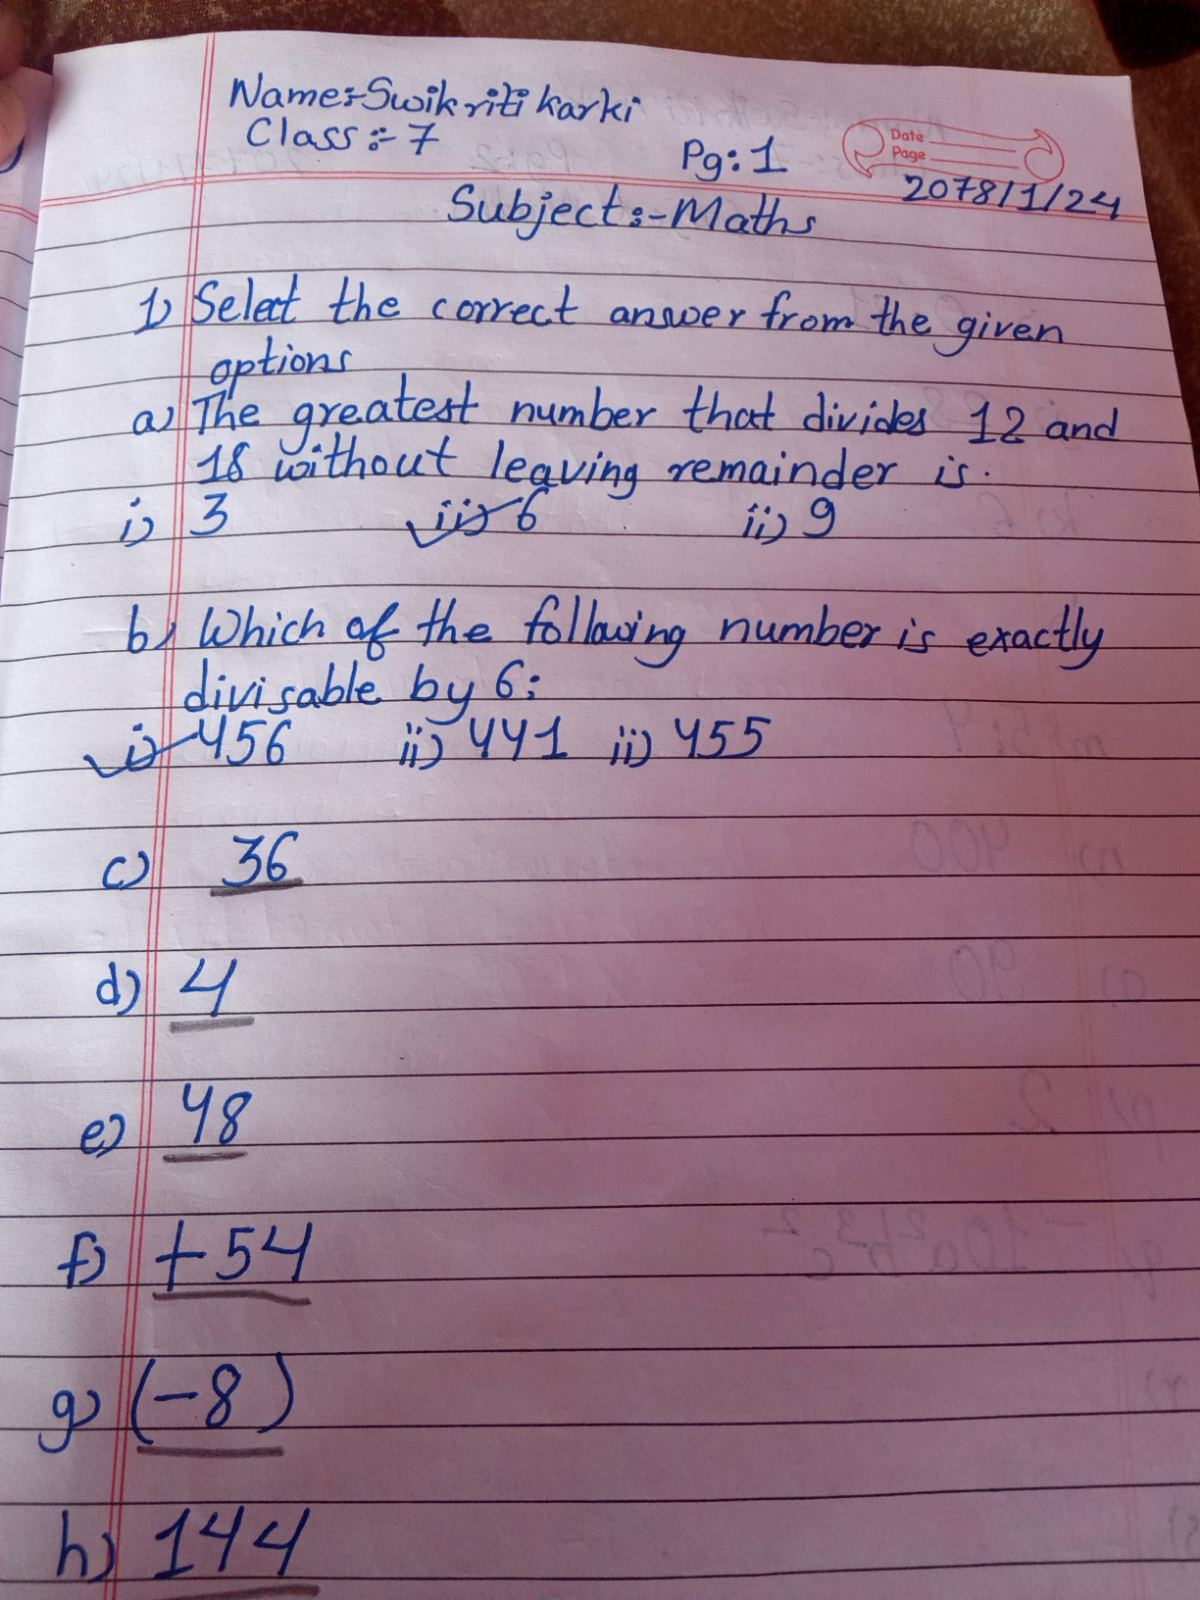 Name:-Swikriti karki
Class:- 7
Pg: 1
Date
Page
2078/1/24
Subject:-Maths
1) Select the correct answer from the given
options
a) The greatest number that divides 12 and
18 without leaving remainder is.
i) 3 ii) 6 ii) 9
b) Which of the following number is exactly
divisable by 6:
i) 456 ii) 441 ii) 455
c) 36
d) 4
e) 48
f) +54
g) (-8)
h) 144